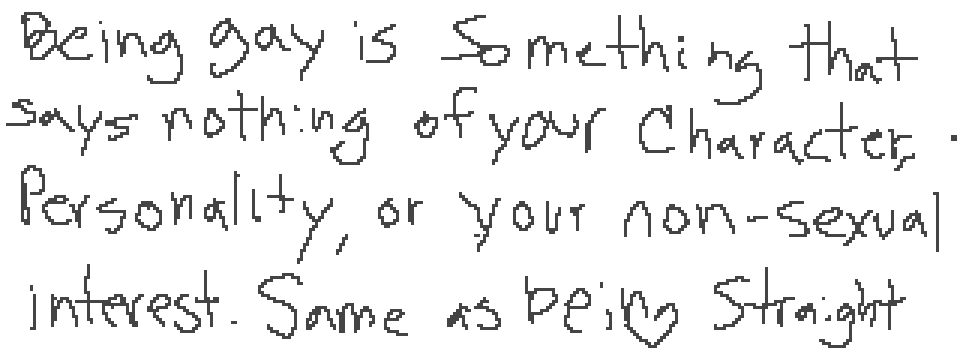 Being gay is Something that
says nothing of your Character,
Personality, or your non-sexual
interest. Same as being Straight